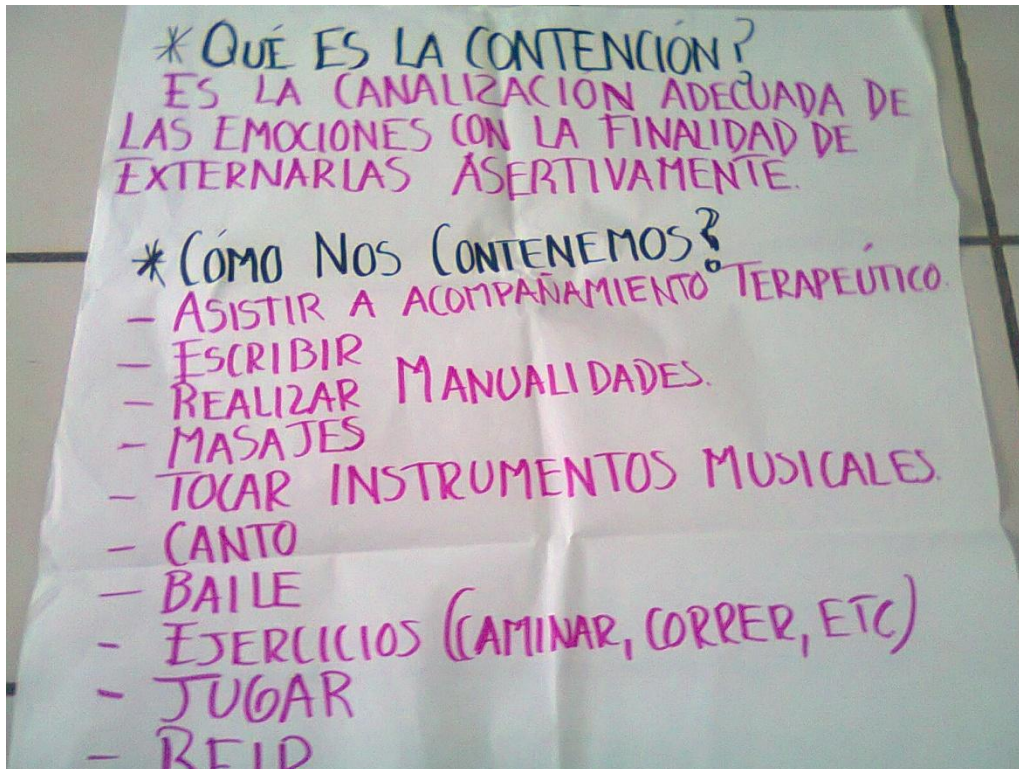 * QUÉ ES LA CONTENCIÓN?
ES LA CANALIZACIÓN ADECUADA DE
LAS EMOCIONES CON LA FINALIDAD DE
EXTERNARLAS ASERTIVAMENTE.
* CÓMO NOS CONTENEMOS?
- ASISTIR A ACOMPAÑAMIENTO TERAPEÚTICO.
- ESCRIBIR
- REALIZAR MANUALIDADES.
- MASAJES
- TOCAR INSTRUMENTOS MUSICALES.
- CANTO
- BAILE
- EJERCICIOS (CAMINAR, CORRER, ETC)
- JUGAR
- REIR